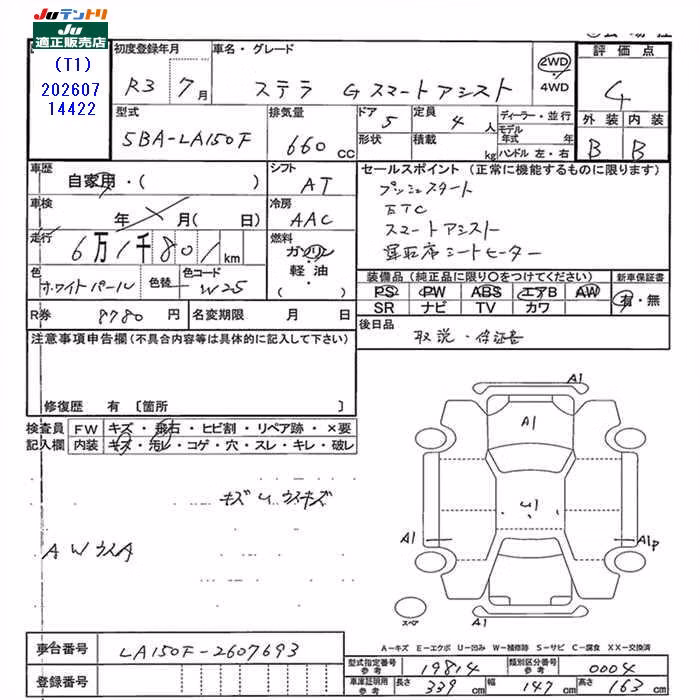 Juテントリ
Ju
適正販売店
(T1)
202607
14422
初度登録年月
R3 7月
車名・グレード
ステラ G スマートアシスト
2WD
・
4WD
評価点
4
外装 内装
B B
型式
5BA-LA150F
排気量
660 cc
ドア 5
形状
定員 4 人
積載 kg
ディーラー・並行
モデル年式 年
ハンドル 左・右
車歴
自家用・( )
シフト
AT
車検
年 月( 日)
冷房
AAC
走行
6万1千801km
燃料
ガソリン
軽油
・( )
色
ホワイトパール
色替
色コード
W25
セールスポイント (正常に機能するものに限ります)
プッシュスタート
ETC
スマートアシスト
運転席シートヒーター
装備品 (純正品に限り○をつけてください)
PS PW ABS エアB AW
SR ナビ TV カワ
新車保証書
有・無
R券 8780 円
名変期限 月 日
後日品
取説・保証書
注意事項申告欄 (不具合内容等は具体的に記入して下さい)
修復歴 有 〔箇所 〕
検査員記入欄
FW キズ・飛石・ヒビ割・リペア跡・×要
内装 キズ・汚レ・コゲ・穴・スレ・キレ・破レ
A1
A1
キズ U ウスキズ
U1
A1
A1P
AWウスA
スペア
A-キズ E-エクボ U-凹み W-補修跡 S-サビ C-腐食 XX-交換済
車台番号 LA150F-2607693
登録番号
型式指定番号参考 19814
類別区分番号参考 0004
車庫証明用参考 長さ 339cm 幅 147cm 高さ 163cm